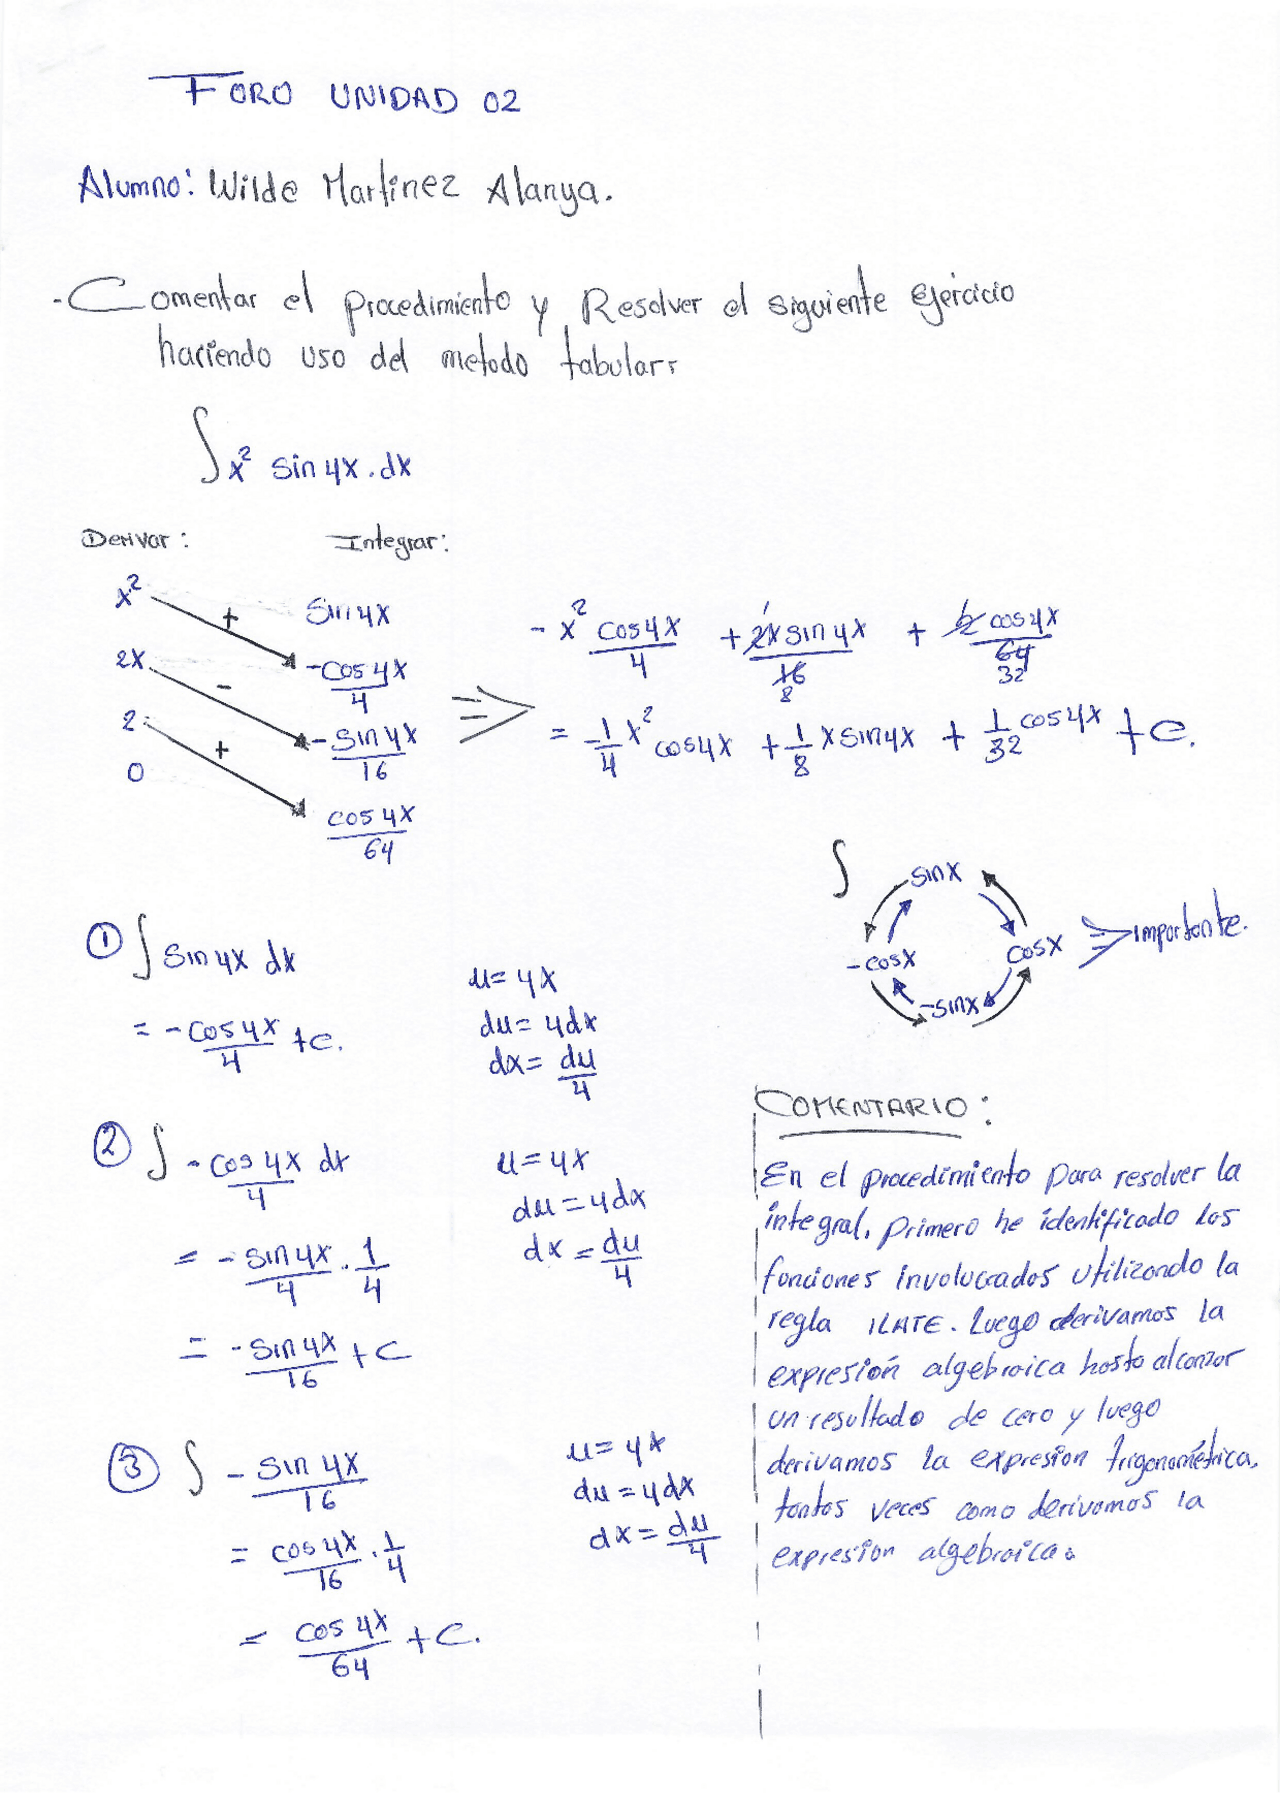 FORO UNIDAD 02
Alumno: Wilde Martinez Alanya.
- Comentar el procedimiento y Resolver el siguiente ejercicio
haciendo uso del metodo tabular:
∫x² sin 4x . dx
Derivar: Integrar:
x² + sin 4x
2x - -cos 4x/4
2 + -sin 4x/16
0 cos 4x/64
⇒ - x² cos 4x/4 + 2x sin 4x/16 + 2 cos 4x/64
1 8 32
= -1/4 x² cos 4x + 1/8 x sin 4x + 1/32 cos 4x + C.
∫ sin x
-cos x cos x ⇒ importante.
-sin x
① ∫ sin 4x dx
= -cos 4x/4 + c.
u = 4x
du = 4dx
dx = du/4
② ∫ -cos 4x/4 dx
= -sin 4x/4 . 1/4
= -sin 4x/16 + c
u = 4x
du = 4dx
dx = du/4
③ ∫ -sin 4x/16
= cos 4x/16 . 1/4
= cos 4x/64 + C.
u = 4x
du = 4dx
dx = du/4
COMENTARIO:
En el procedimiento para resolver la
integral, primero he identificado las
funciones involucradas utilizando la
regla ILATE. Luego derivamos la
expresión algebraica hasta alcanzar
un resultado de cero y luego
derivamos la expresion trigonométrica,
tantas veces como derivamos la
expresion algebraica.